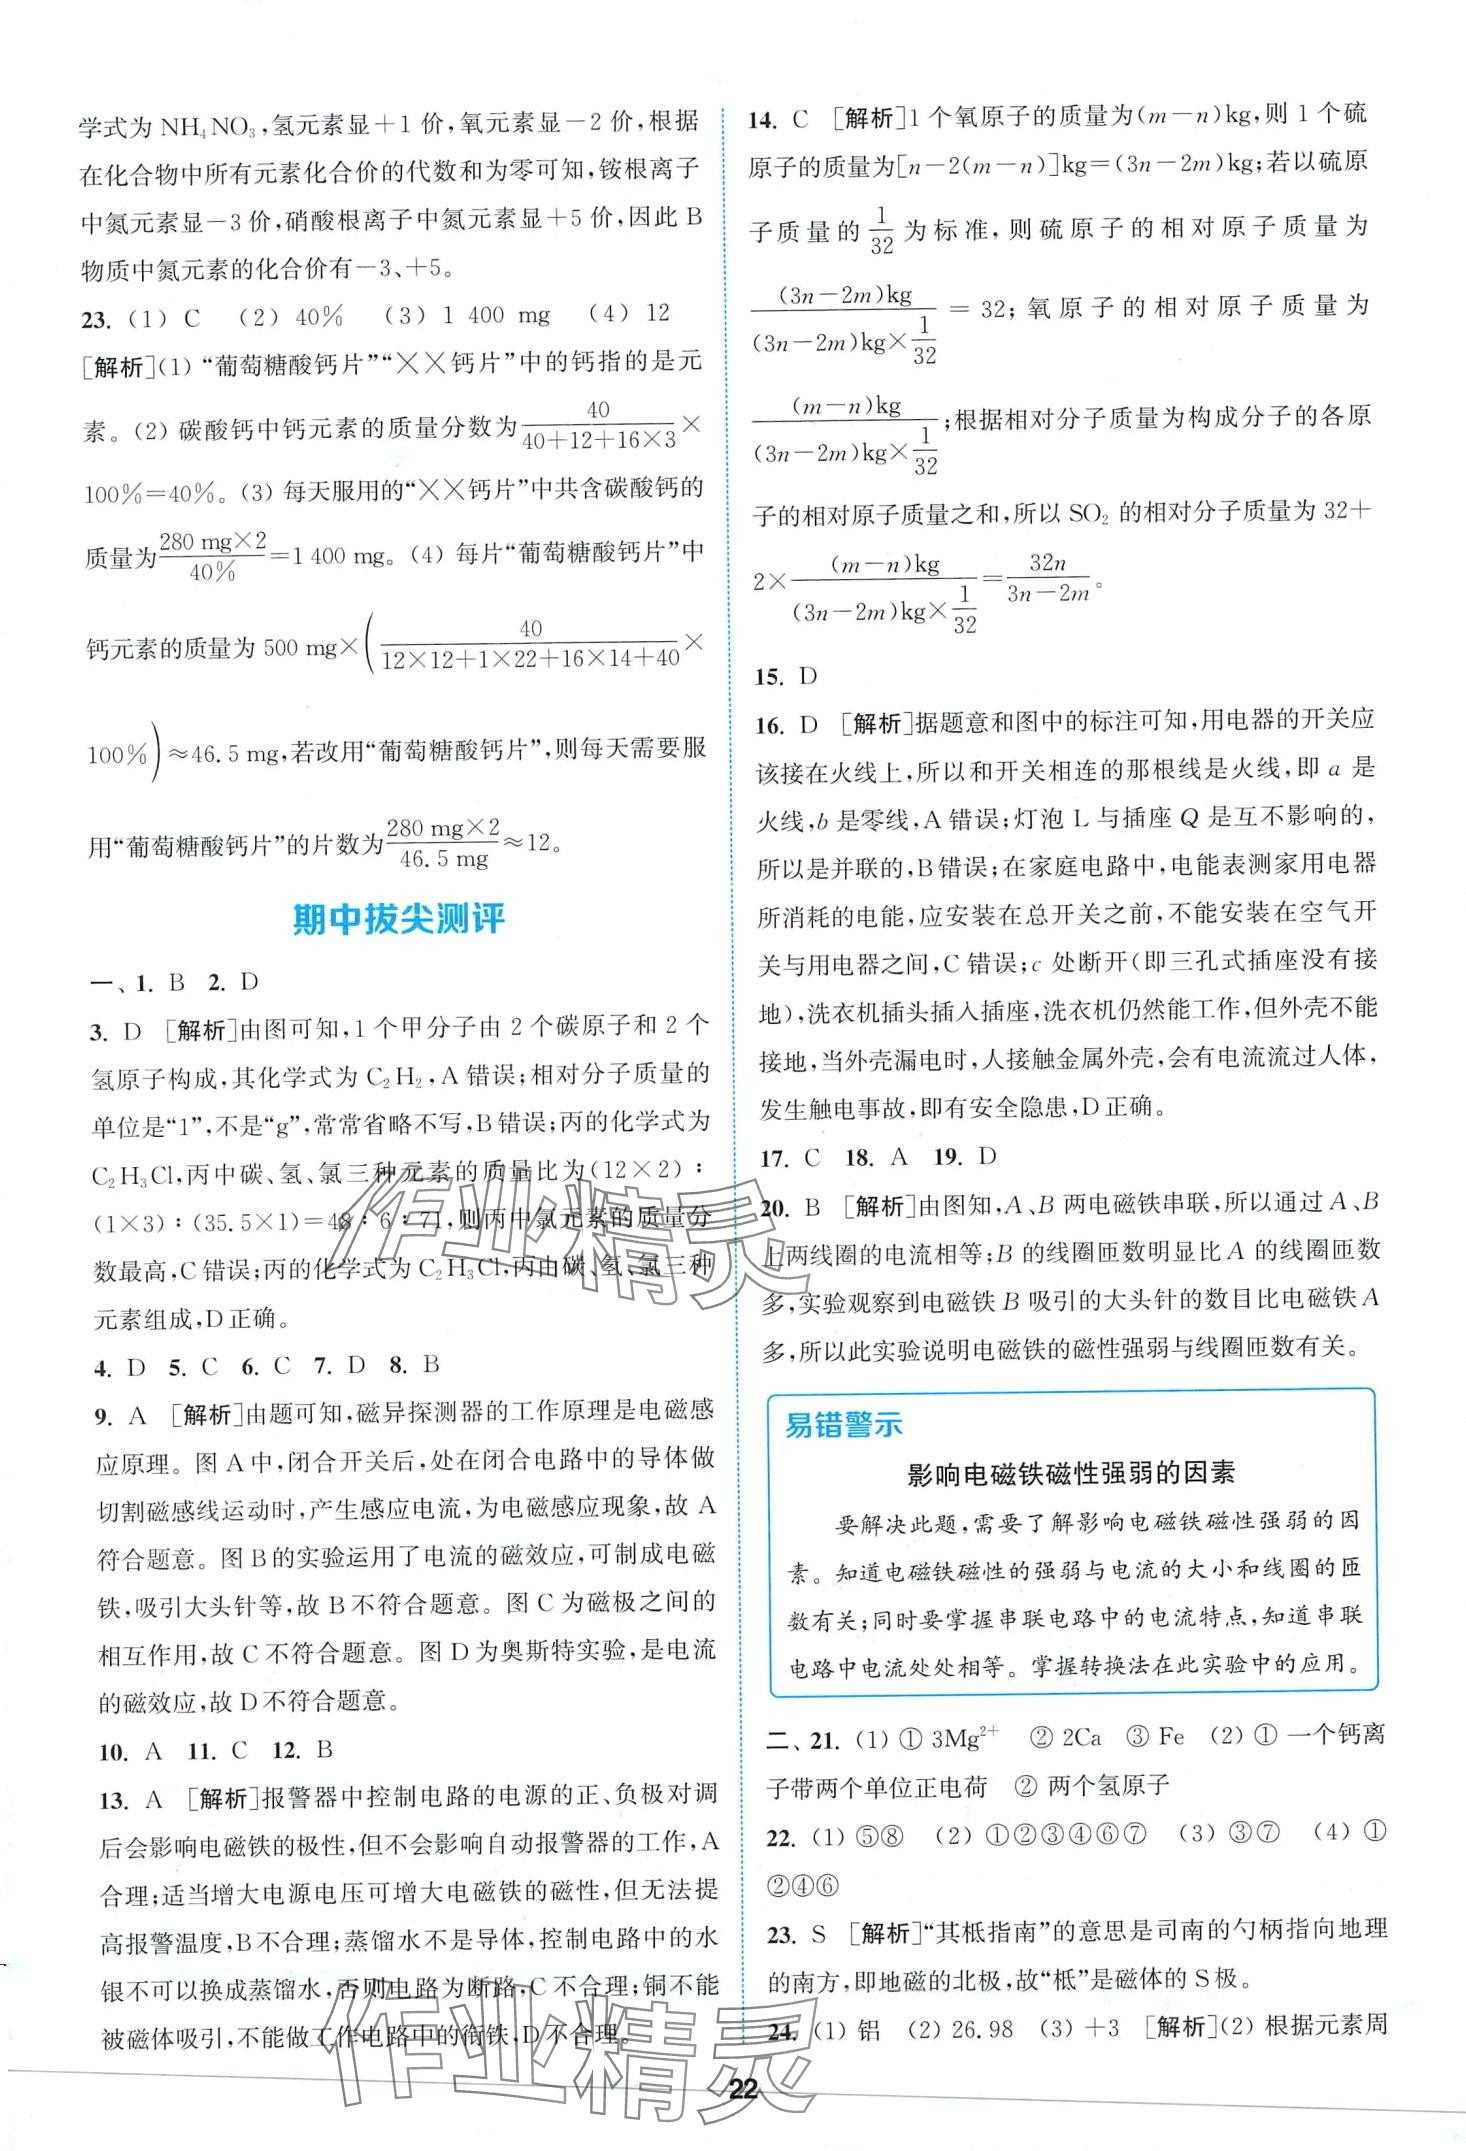 学式为 NH₄NO₃,氢元素显+1 价,氧元素显-2 价,根据
在化合物中所有元素化合价的代数和为零可知,铵根离子
中氮元素显-3 价,硝酸根离子中氮元素显+5 价,因此 B
物质中氮元素的化合价有-3、+5。
23. (1) C (2) 40% (3) 1 400 mg (4) 12
[解析](1) “葡萄糖酸钙片”“××钙片”中的钙指的是元
素。(2) 碳酸钙中钙元素的质量分数为 40/(40+12+16×3) ×
100%=40%。(3) 每天服用的“××钙片”中共含碳酸钙的
质量为 (280 mg×2)/40% =1 400 mg。(4) 每片“葡萄糖酸钙片”中
钙元素的质量为 500 mg×( 40/(12×12+1×22+16×14+40) ×
100%)≈46.5 mg,若改用“葡萄糖酸钙片”,则每天需要服
用“葡萄糖酸钙片”的片数为 (280 mg×2)/(46.5 mg) ≈12。
期中拔尖测评
一、1. B 2. D
3. D [解析]由图可知,1 个甲分子由 2 个碳原子和 2 个
氢原子构成,其化学式为 C₂H₂,A 错误;相对分子质量的
单位是“1”,不是“g”,常常省略不写,B 错误;丙的化学式为
C₂H₃Cl,丙中碳、氢、氯三种元素的质量比为(12×2)∶
(1×3)∶(35.5×1)=48∶6∶71,则丙中氯元素的质量分
数最高,C 错误;丙的化学式为 C₂H₃Cl,丙由碳、氢、氯三种
元素组成,D 正确。
4. D 5. C 6. C 7. D 8. B
9. A [解析]由题可知,磁异探测器的工作原理是电磁感
应原理。图 A 中,闭合开关后,处在闭合电路中的导体做
切割磁感线运动时,产生感应电流,为电磁感应现象,故 A
符合题意。图 B 的实验运用了电流的磁效应,可制成电磁
铁,吸引大头针等,故 B 不符合题意。图 C 为磁极之间的
相互作用,故 C 不符合题意。图 D 为奥斯特实验,是电流
的磁效应,故 D 不符合题意。
10. A 11. C 12. B
13. A [解析]报警器中控制电路的电源的正、负极对调
后会影响电磁铁的极性,但不会影响自动报警器的工作,A
合理;适当增大电源电压可增大电磁铁的磁性,但无法提
高报警温度,B 不合理;蒸馏水不是导体,控制电路中的水
银不可以换成蒸馏水,否则电路为断路,C 不合理;铜不能
被磁体吸引,不能做工作电路中的衔铁,D 不合理。
14. C [解析]1 个氧原子的质量为(m-n)kg,则 1 个硫
原子的质量为[n-2(m-n)]kg=(3n-2m)kg;若以硫原
子质量的 1/32 为标准,则硫原子的相对原子质量为
(3n-2m)kg/((3n-2m)kg×1/32) = 32;氧原子的相对原子质量为
(m-n)kg/((3n-2m)kg×1/32) ;根据相对分子质量为构成分子的各原
子的相对原子质量之和,所以 SO₂ 的相对分子质量为 32+
2× (m-n)kg/((3n-2m)kg×1/32) = 32n/(3n-2m) 。
15. D
16. D [解析]据题意和图中的标注可知,用电器的开关应
该接在火线上,所以和开关相连的那根线是火线,即 a 是
火线,b 是零线,A 错误;灯泡 L 与插座 Q 是互不影响的,
所以是并联的,B 错误;在家庭电路中,电能表测家用电器
所消耗的电能,应安装在总开关之前,不能安装在空气开
关与用电器之间,C 错误;c 处断开(即三孔式插座没有接
地),洗衣机插头插入插座,洗衣机仍然能工作,但外壳不能
接地,当外壳漏电时,人接触金属外壳,会有电流流过人体,
发生触电事故,即有安全隐患,D 正确。
17. C 18. A 19. D
20. B [解析]由图知,A、B 两电磁铁串联,所以通过 A、B
上两线圈的电流相等;B 的线圈匝数明显比 A 的线圈匝数
多,实验观察到电磁铁 B 吸引的大头针的数目比电磁铁 A
多,所以此实验说明电磁铁的磁性强弱与线圈匝数有关。
易错警示
影响电磁铁磁性强弱的因素
要解决此题,需要了解影响电磁铁磁性强弱的因
素。知道电磁铁磁性的强弱与电流的大小和线圈的匝
数有关;同时要掌握串联电路中的电流特点,知道串联
电路中电流处处相等。掌握转换法在此实验中的应用。
二、21. (1) ① 3Mg²⁺ ② 2Ca ③ Fe (2) ① 一个钙离
子带两个单位正电荷 ② 两个氢原子
22. (1) ⑤⑧ (2) ①②③④⑥⑦ (3) ③⑦ (4) ①
②④⑥
23. S [解析]“其柢指南”的意思是司南的勺柄指向地理
的南方,即地磁的北极,故“柢”是磁体的 S 极。
24. (1) 铝 (2) 26.98 (3) +3 [解析](2) 根据元素周
22
作业精灵
作业精灵